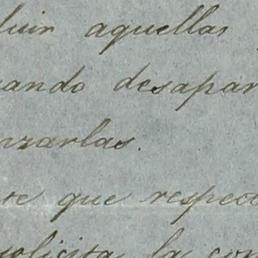 luir aquellas
ando desapar
nzarlas.
te que respec
solicita la con